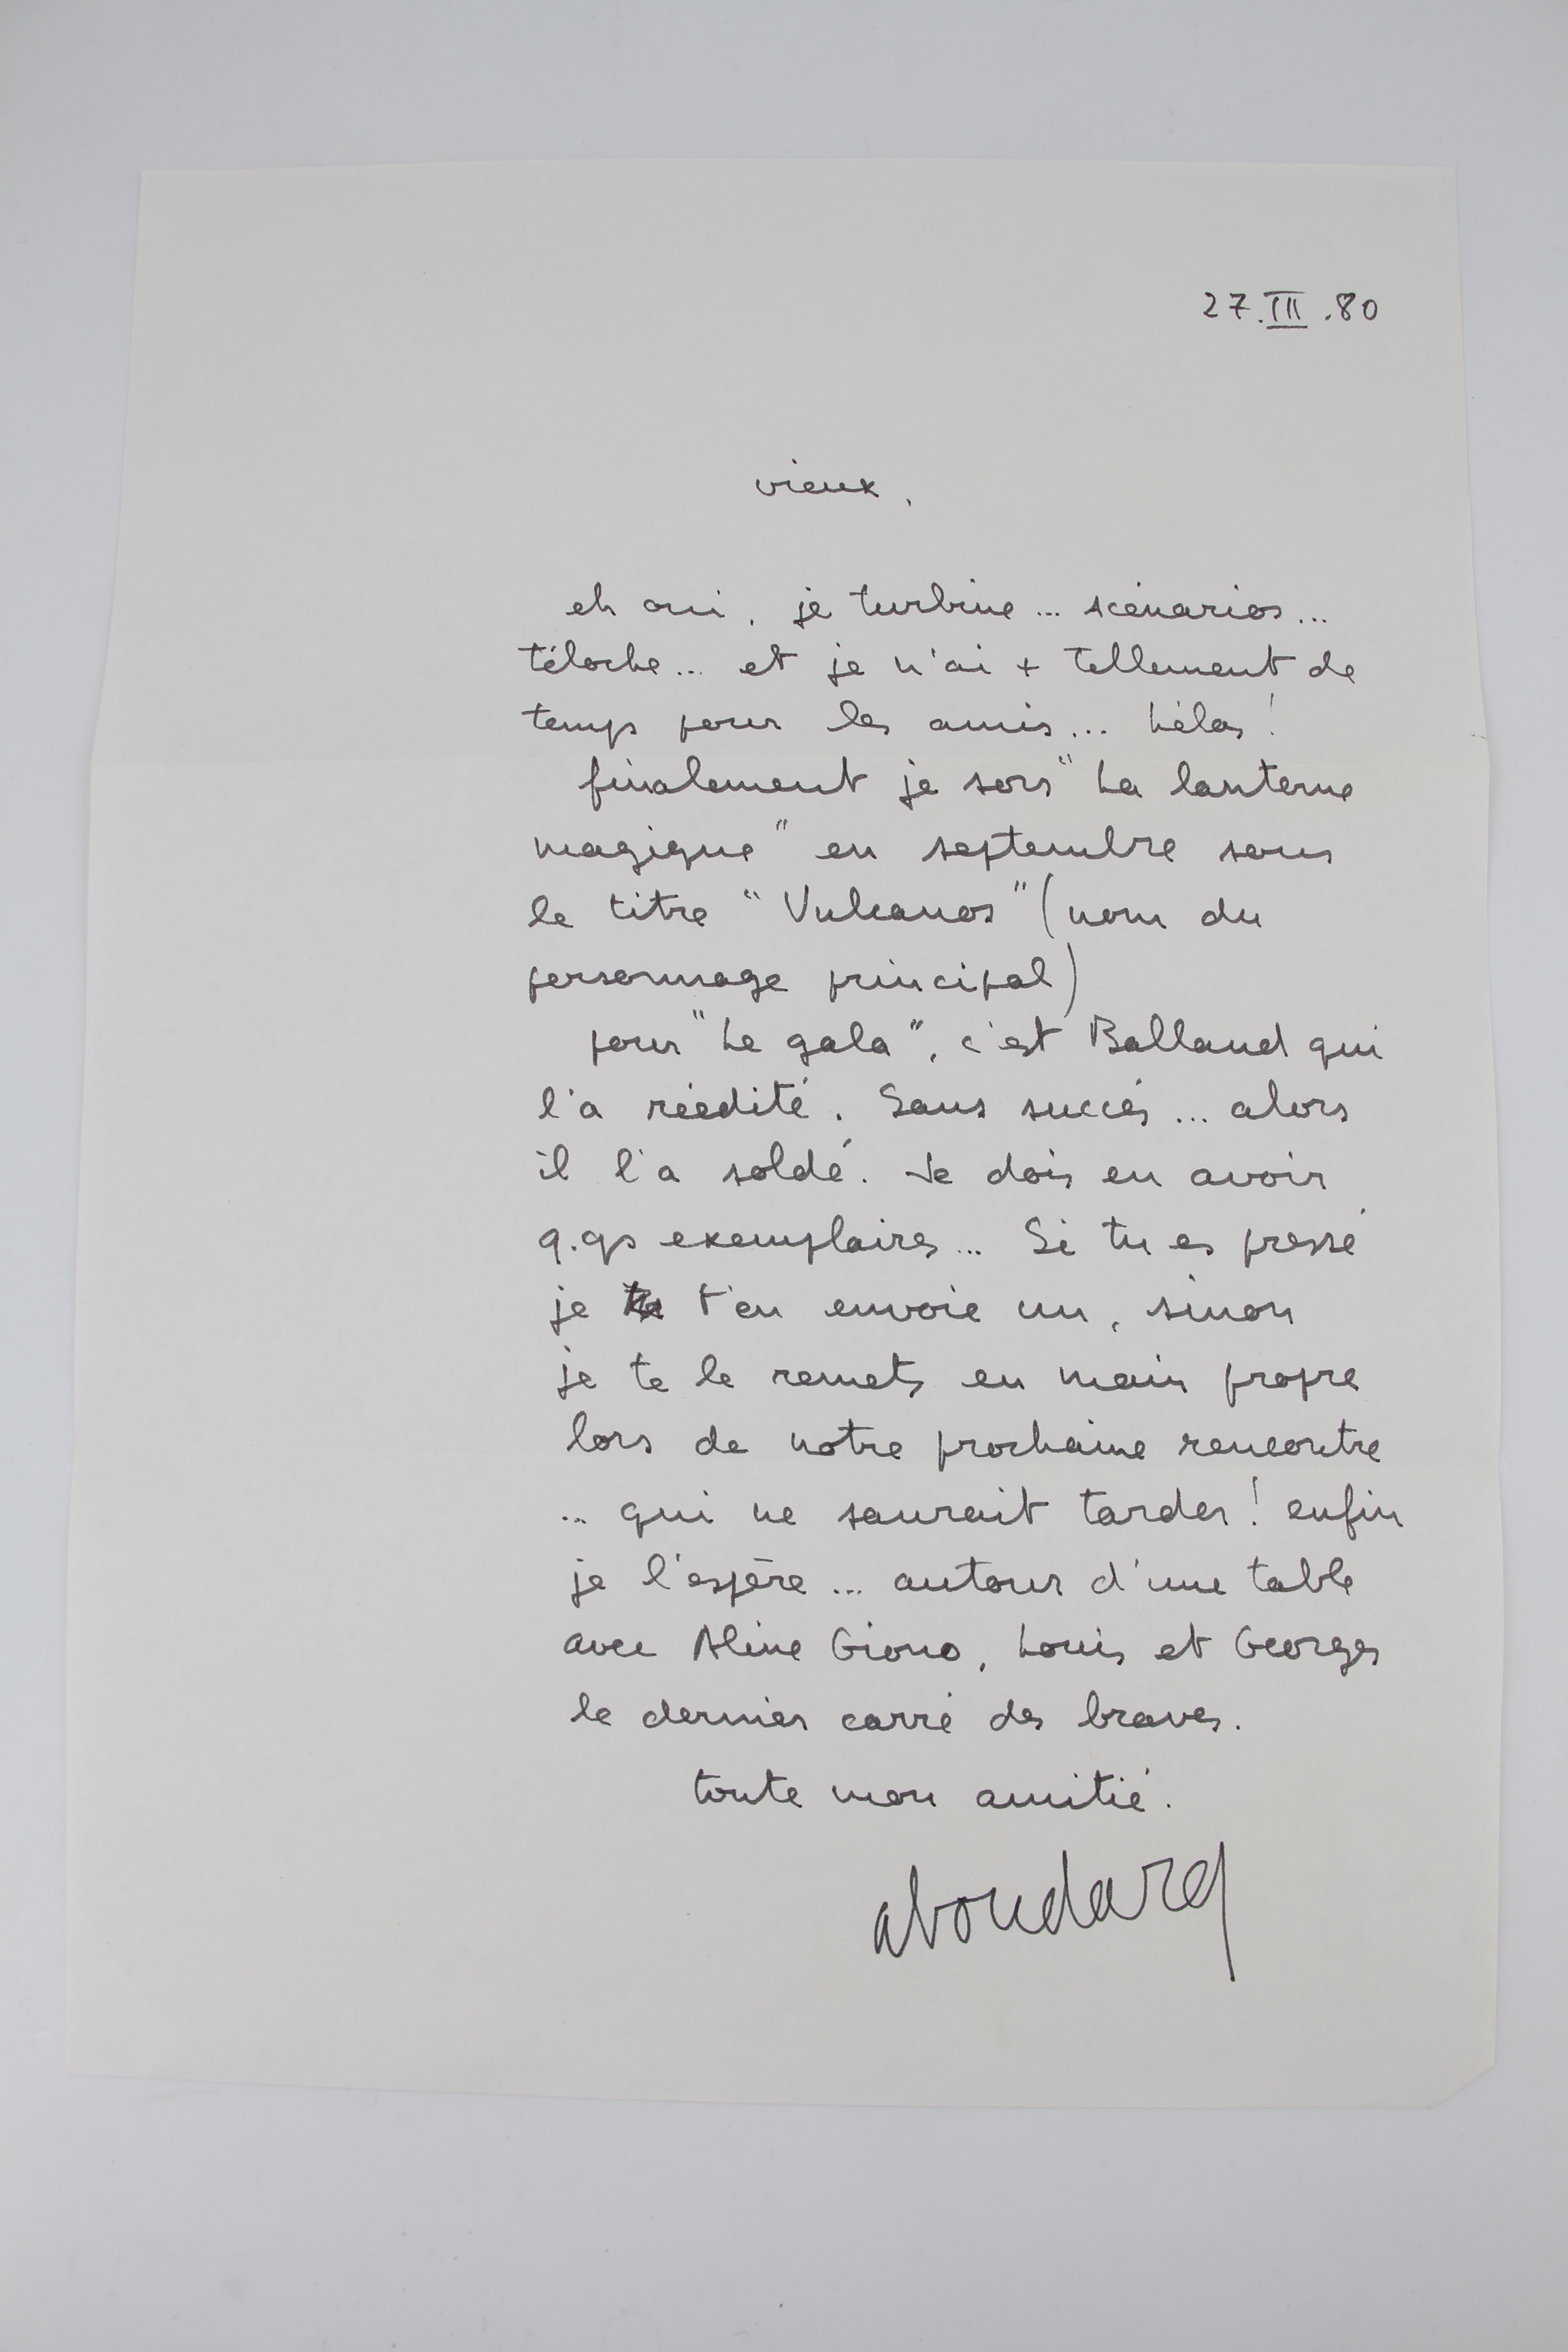 27.III.80
vieux,
eh oui, je turbine... scénarios...
téloche... et je n'ai + tellement de
temps pour les amis... hélas!
finalement je sors "La lanterne
magique" en septembre sous
le titre "Vulcanos" (nom du
personnage principal)
pour "Le gala", c'est Balland qui
l'a réédité. Sans succés... alors
il l'a soldé. Je dois en avoir
q.qs exemplaires... Si tu es pressé
je t'en envoie un, sinon
je te le remets en main propre
lors de notre prochaine rencontre
... qui ne saurait tarder! enfin
je l'espère... autour d'une table
avec Aline Giono, Louis et Georges
le dernier carré des braves.
toute mon amitié.
aboudard